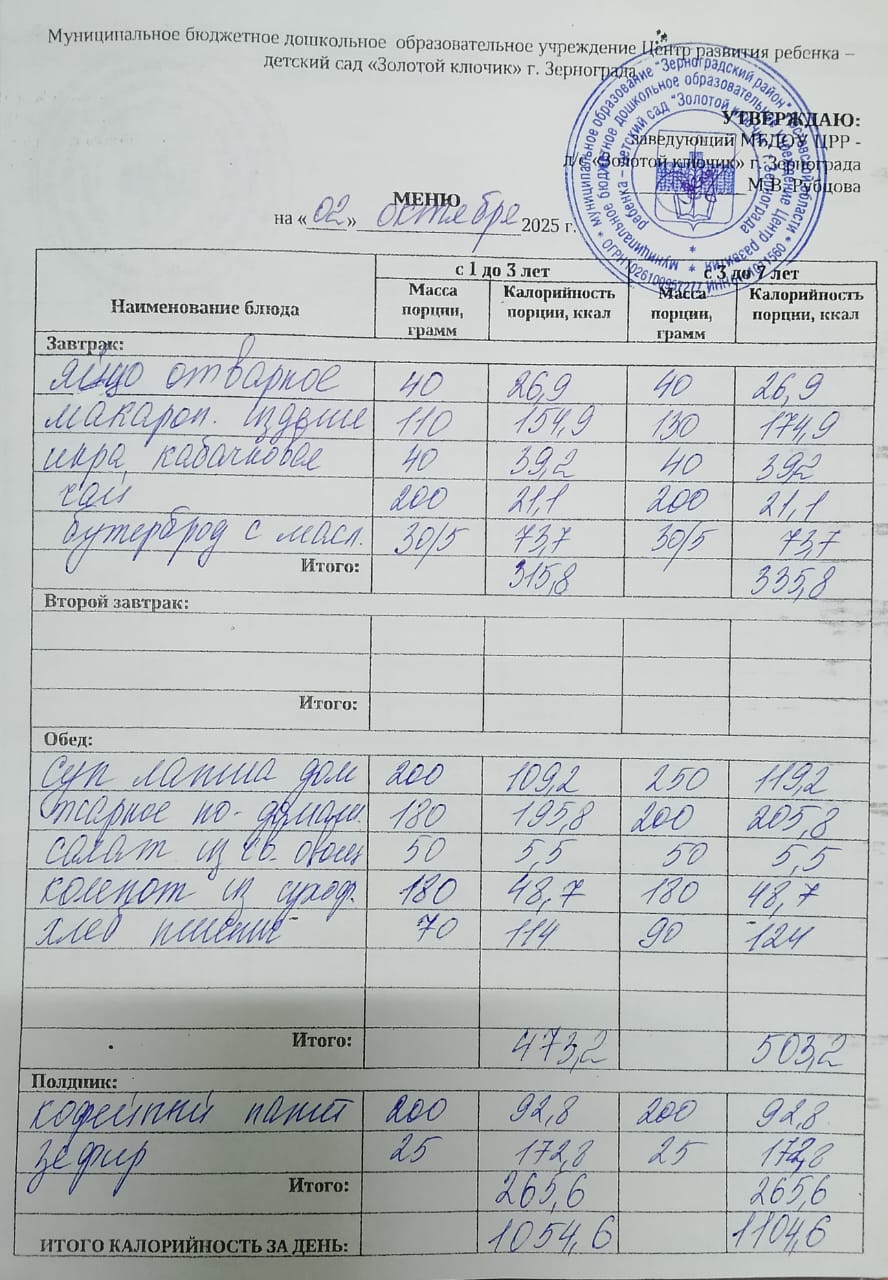 Муниципальное бюджетное дошкольное образовательное учреждение Центр развития ребенка –
детский сад «Золотой ключик» г. Зернограда
УТВЕРЖДАЮ:
заведующий МБДОУ ЦРР -
д/с «Золотой ключик» г. Зернограда
М.В. Рубцова
МЕНЮ
на «02» октября 2025 г.
Наименование блюда с 1 до 3 лет с 3 до 7 лет
Масса порции, грамм Калорийность порции, ккал Масса порции, грамм Калорийность порции, ккал
Завтрак:
яйцо отварное 40 26,9 40 26,9
макарон. изделие 110 154,9 130 174,9
икра кабачковая 40 39,2 40 39,2
чай 200 21,1 200 21,1
бутерброд с масл. 30/5 73,7 30/5 73,7
Итого: 315,8 335,8
Второй завтрак:
Итого:
Обед:
суп лапша дом 200 109,2 250 119,2
жаркое по-домаш. 180 195,8 200 205,8
салат из св. овощ 50 5,5 50 5,5
компот из сухоф. 180 48,7 180 48,7
хлеб пшенич 70 114 90 124
Итого: 473,2 503,2
Полдник:
кофейный напит 200 92,8 200 92,8
зефир 25 172,8 25 172,8
Итого: 265,6 265,6
ИТОГО КАЛОРИЙНОСТЬ ЗА ДЕНЬ: 1054,6 1104,6